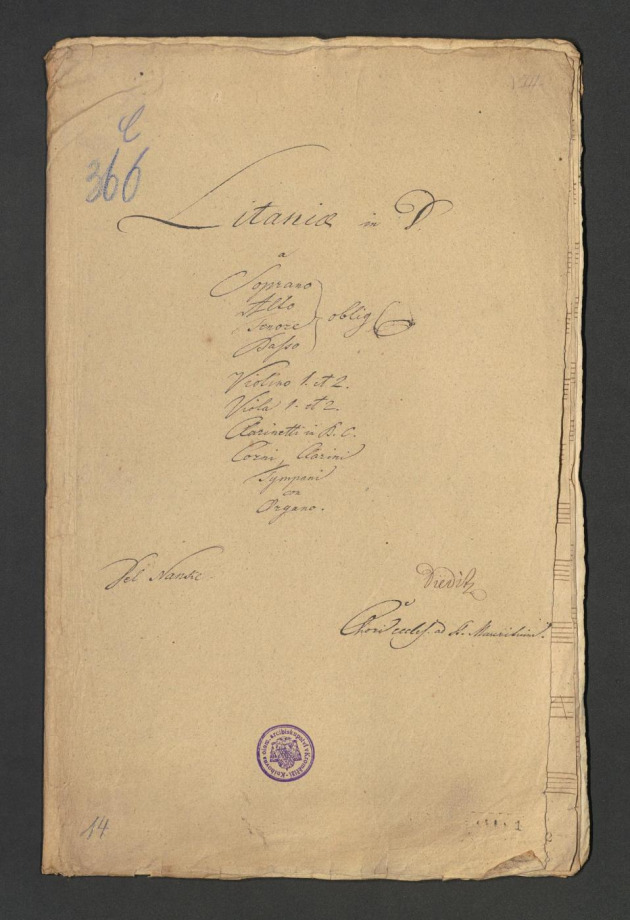 C
366
Litaniæ in D
a
Soprano
Alto
Tenore
Basso
oblig
Violino 1. et 2.
Viola 1. et 2.
Clarinetti in B. C.
Corni, Clarini
Tympani
con
Organo.
Del
Dieditz
Chori eccles. ad S. Mauritium.
14
1